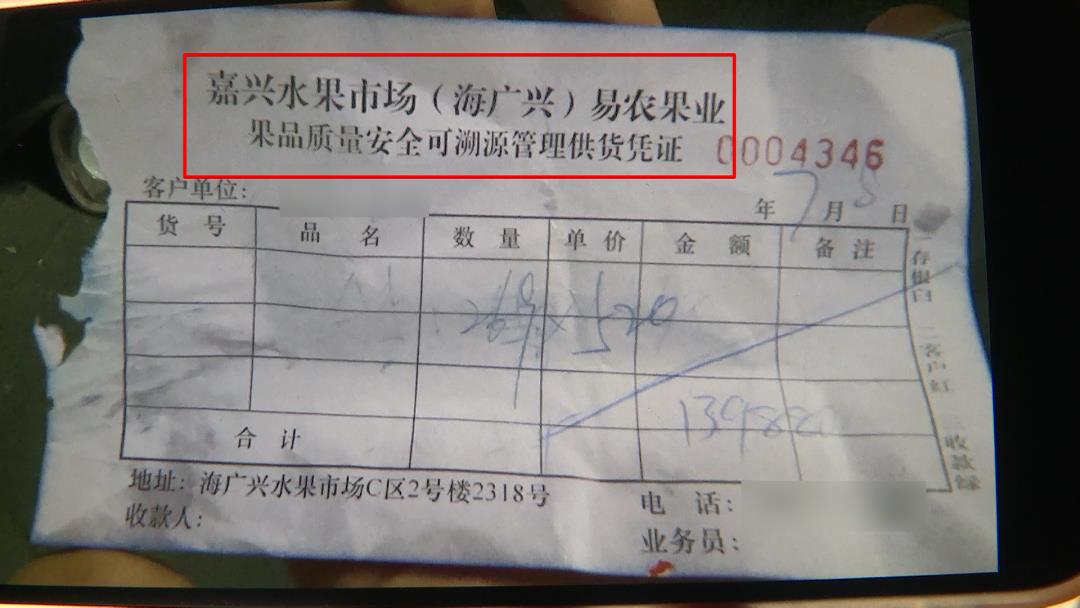 嘉兴水果市场（海广兴）易农果业
果品质量安全可溯源管理供货凭证 0004346
客户单位：
年 7 月 8 日
货号 品名 数量 单价 金额 备注
520
合计
一存根白 二客户红 三收款绿
地址：海广兴水果市场C区2号楼2318号
电话：
收款人：
业务员：